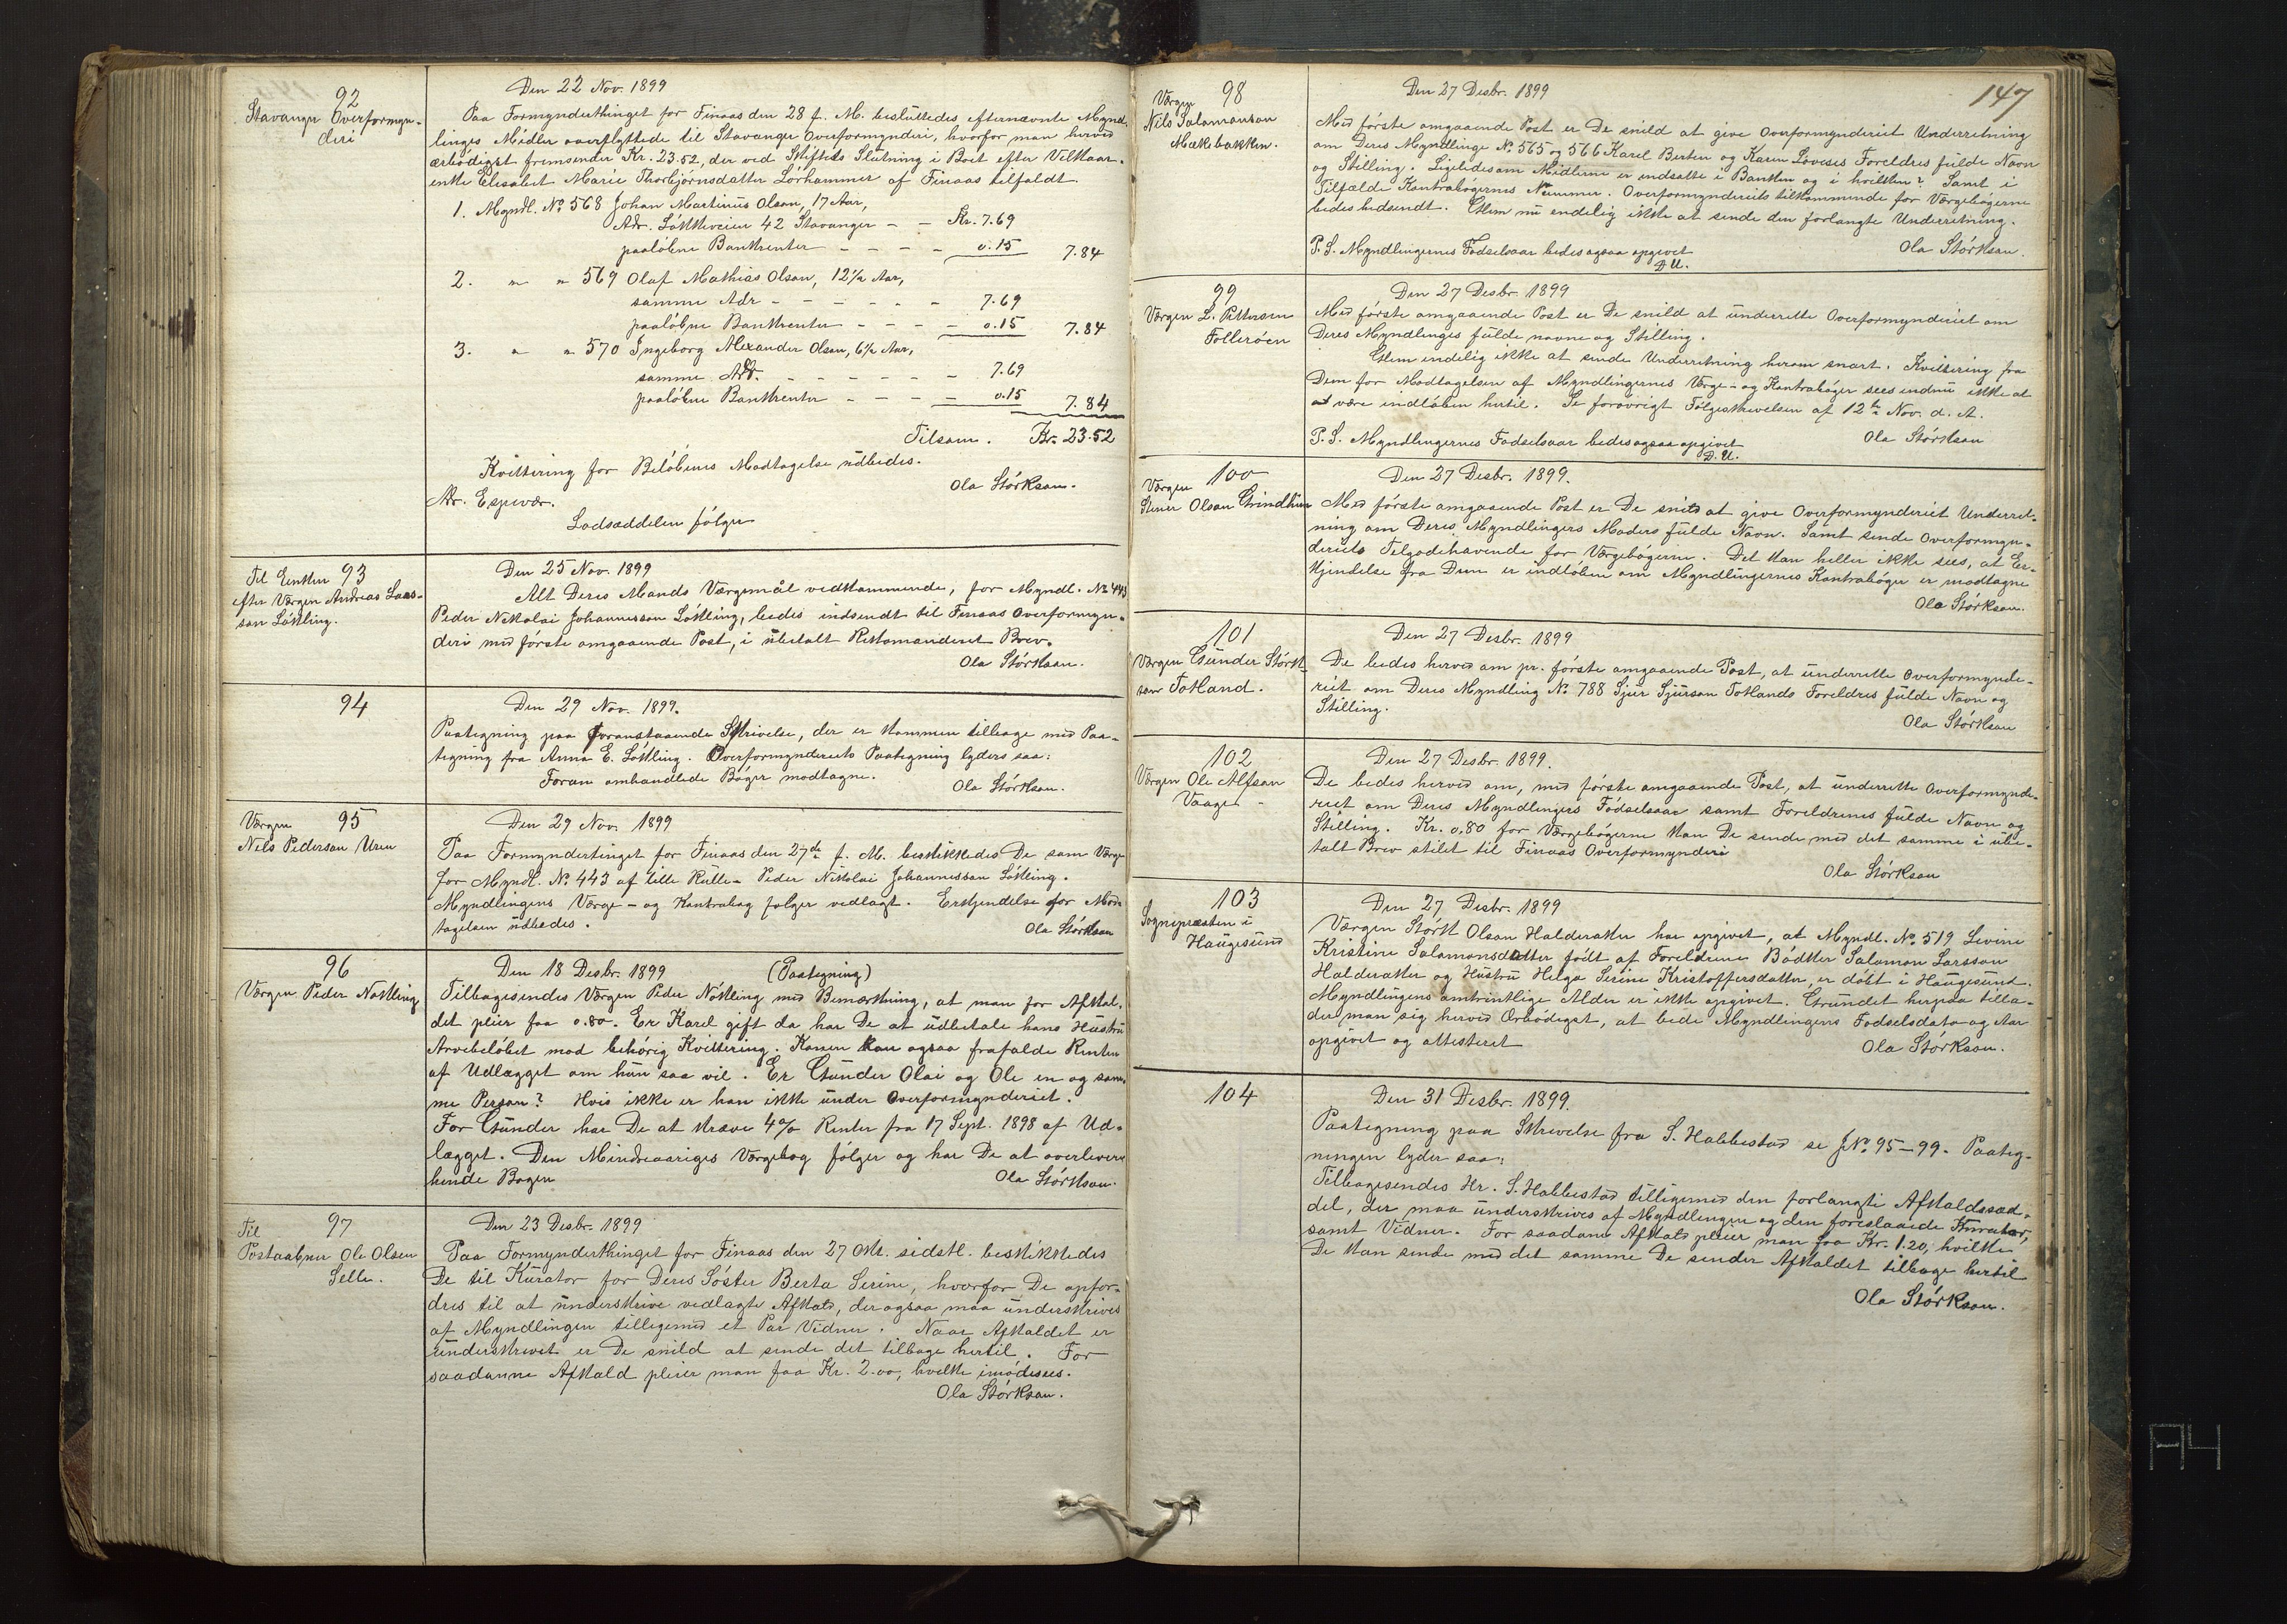 92
Stavanger Overformyn-
deri
Den 22 Nov. 1899
Paa Formynderthinget for Finaas den 28 f. M. besluttedes efternævnte Mynd-
linges Midler overflyttede til Stavanger Overformynderi, hvorfor man herved
ærbødigst fremsender Kr. 23.52, der ved Skiftets Slutning i Boet efter Velkaar-
enke Elisabet Marie Thorbjørnsdatter Lørhammer af Finaas tilfaldt
1. Myndl. No 568 Johan Martinus Olson, 17 Aar,
Adr. Løkkeveien 42 Stavanger - - Kr. 7.69
paaløbne Bankrenter - - - - 0.15 7.84
2. " " 569 Olaf Mathias Olson, 12½ Aar,
samme Adr - - - - - - 7.69
paaløbne Bankrenter - - - - 0.15 7.84
3. " " 570 Ingeborg Alexander Olson, 6½ Aar,
samme Adr. - - - - - - 7.69
paaløbne Bankrenter - - - - 0.15 7.84
Tilsam. Kr. 23.52
Kvittering for Beløbenes Modtagelse udbedes.
Ola Størkson.
Adr. Espevær.
Lodseddelen følger
Til Enken 93
efter Værgen Andreas Laas-
son Løkling.
Den 25 Nov. 1899
Alt Deres Mands Værgemål vedkommende, for Myndl. No 443
Peder Nikolai Johannesson Løkling, bedes indsendt til Finaas Overformyn-
deri med første omgaaende Post, i ubetalt Rekomanderet Brev.
Ola Størkson.
94
Den 29 Nov. 1899.
Paategning paa foranstaaende Skrivelse, der er kommen tilbage med Paa-
tegning fra Anna E. Løkling. Overformynderiets Paategning lyders saa:
Foran omhandlede Bøger modtagne.
Ola Størkson.
Værgen 95
Nels Pederson Uren
Den 29 Nov. 1899
Paa Formyndertinget for Finaas den 27de f. M. beskikkedes De som Værge
for Myndl. No. 443 af lille Rulle - Peder Nikolai Johannesson Løkling.
Myndlingens Værge - og Kontrabog følger vedlagt. Erkjendelse for Mod-
tagelsen udbedes.
Ola Størkson
96
Værgen Peder Nøkling
Den 18 Desbr. 1899 (Paategning)
Tilbagesendes Værgen Peder Nøkling med Bemærkning, at man for Afkal-
det pleier faa 0.80. Er Karel gift da har De at udbetale hans Hustru
Arvebeløbet mod behørig Kvittering. Konen kan ogsaa frafalde Renten
af Udlægget om hun saa vil. Er Gunder Olai og Ole en og sam-
me Person? Hvis ikke er han ikke under Overformynderiet.
For Gunder har De at kræve 4% Renter fra 17 Sept. 1898 af Ud-
lægget. Den Mindreaariges Værgebog følger og har De at overlevere
hende Bogen
Ola Størkson.
Til 97
Postaabner Ole Olsen
Selle.
Den 23 Desbr. 1899
Paa Formynderthinget for Finaas den 27 Okt. sidstl. beskikkedes
De til Kurator for Deres Søster Berta Serine, hvorfor De opfor-
dres til at underskrive vedlagte Afkald, der ogsaa maa underskrives
af Myndlingen tilligemed et Par Vidner. Naar Afkaldet er
underskrevet er De snild at sende det tilbage hertil. For
saadanne Afkald pleier man faa Kr. 2.00, hvilke imødesees.
Ola Størkson.
147
Værgen 98
Nils Salamonson
Mækbakken.
Den 27 Desbr. 1899
Med første omgaaende Post er De snild at give Overformynderiet Underretning
om Deres Myndlinge No. 565 og 566 Karel Berten og Karen Loveses Foreldres fulde Navn
og Stilling. Ligeledes om Midlerne er indsatte i Banken og i hvilken? Samt i
Tilfælde Kontrabøgernes Nummer. Overformynderiets tilkommende for Værgebøgerne
bedes hidsendt. Glem nu endelig ikke at sende den forlangte Underretning.
Ola Størkson.
P. S. Myndlingernes Fødselsaar bedes ogsaa opgivet
D. U.
99
Værgen L. Pettersen
Folleröen
Den 27 Desbr. 1899
Med første omgaaende Post er De snild at underrette Overformynderiet om
Deres Myndlinges fulde navne og Stilling.
Glem endelig ikke at sende Underretning herom snart. Kvittering fra
Dem for Modtagelsen af Myndlingernes Værge- og Kontrabøger sees endnu ikke at
at være indløben hertil. Se forøvrigt Følgeskrivelsen af 12te Nov. d. A.
Ola Størkson
P. S. Myndlingernes Fødselsaar bedes ogsaa opgivet
D. U.
Værgen 100
Stener Olson Grindheim
Den 27 Desbr. 1899.
Med første omgaaende Post er De snild at give Overformynderiet Underret-
ning om Deres Myndlingers Moders fulde Navn. Samt sende Overformyn-
deriets Tilgodehavende for Værgebøgerne. Det kan heller ikke sees, at Er-
kjendelse fra Dem er indløben om Myndlingernes Kontrabøger er modtagne
Ola Størkson.
101
Værgen Gunder Størk-
son Totland.
Den 27 Desbr. 1899
De bedes herved om pr. første omgaaende Post, at underrette Overformynde-
riet om Deres Myndling No. 788 Sjur Sjurson Totlands Foreldres fulde Navn og
Stilling.
Ola Størkson
102
Værgen Ole Alfson
Vaage -
Den 27 Desbr. 1899.
De bedes herved om, med første omgaaende Post, at underrette Overformynde-
riet om Deres Myndlingers Fødselsaar samt Foreldrenes fulde Navn og
Stilling. Kr. 0.80 for Værgebøgerne kan De sende med det samme i ube-
talt Brev stilet til Finaas Overformynderi
Ola Størkson
103
Sognepræsten i
Haugesund
Den 27 Desbr. 1899
Værgen Størk Olson Halderaker har opgivet, at Myndl. No. 519 Levine
Kristine Salamonsdatter født af Foreldrene Bødker Salomon Larsson
Halderaker og Hustru Helga Serine Kristoffersdatter, er døbt i Haugesund.
Myndlingens omtrintlige Alder er ikke opgivet. Grundet herpaa tilla-
der man sig herved Ærbødigst, at bede Myndlingens Fødselsdato og Aar
opgivet og attesteret
Ola Størkson.
104
Den 31 Desbr. 1899.
Paategning paa Skrivelse fra S. Habbestad se JNo. 95-99. Paateg-
ningen lyder saa:
Tilbagesendes Hr. S. Habbestad tilligemed den forlangte Afkaldssed-
del, der maa underskrives af Myndlingen og den foreslaaede Kurator,
samt Vidner. For saadane Afkald pleier man faa Kr. 1.20, hvilke
De kan sende med det samme De sender Afkaldet tilbage hertil
Ola Størkson.